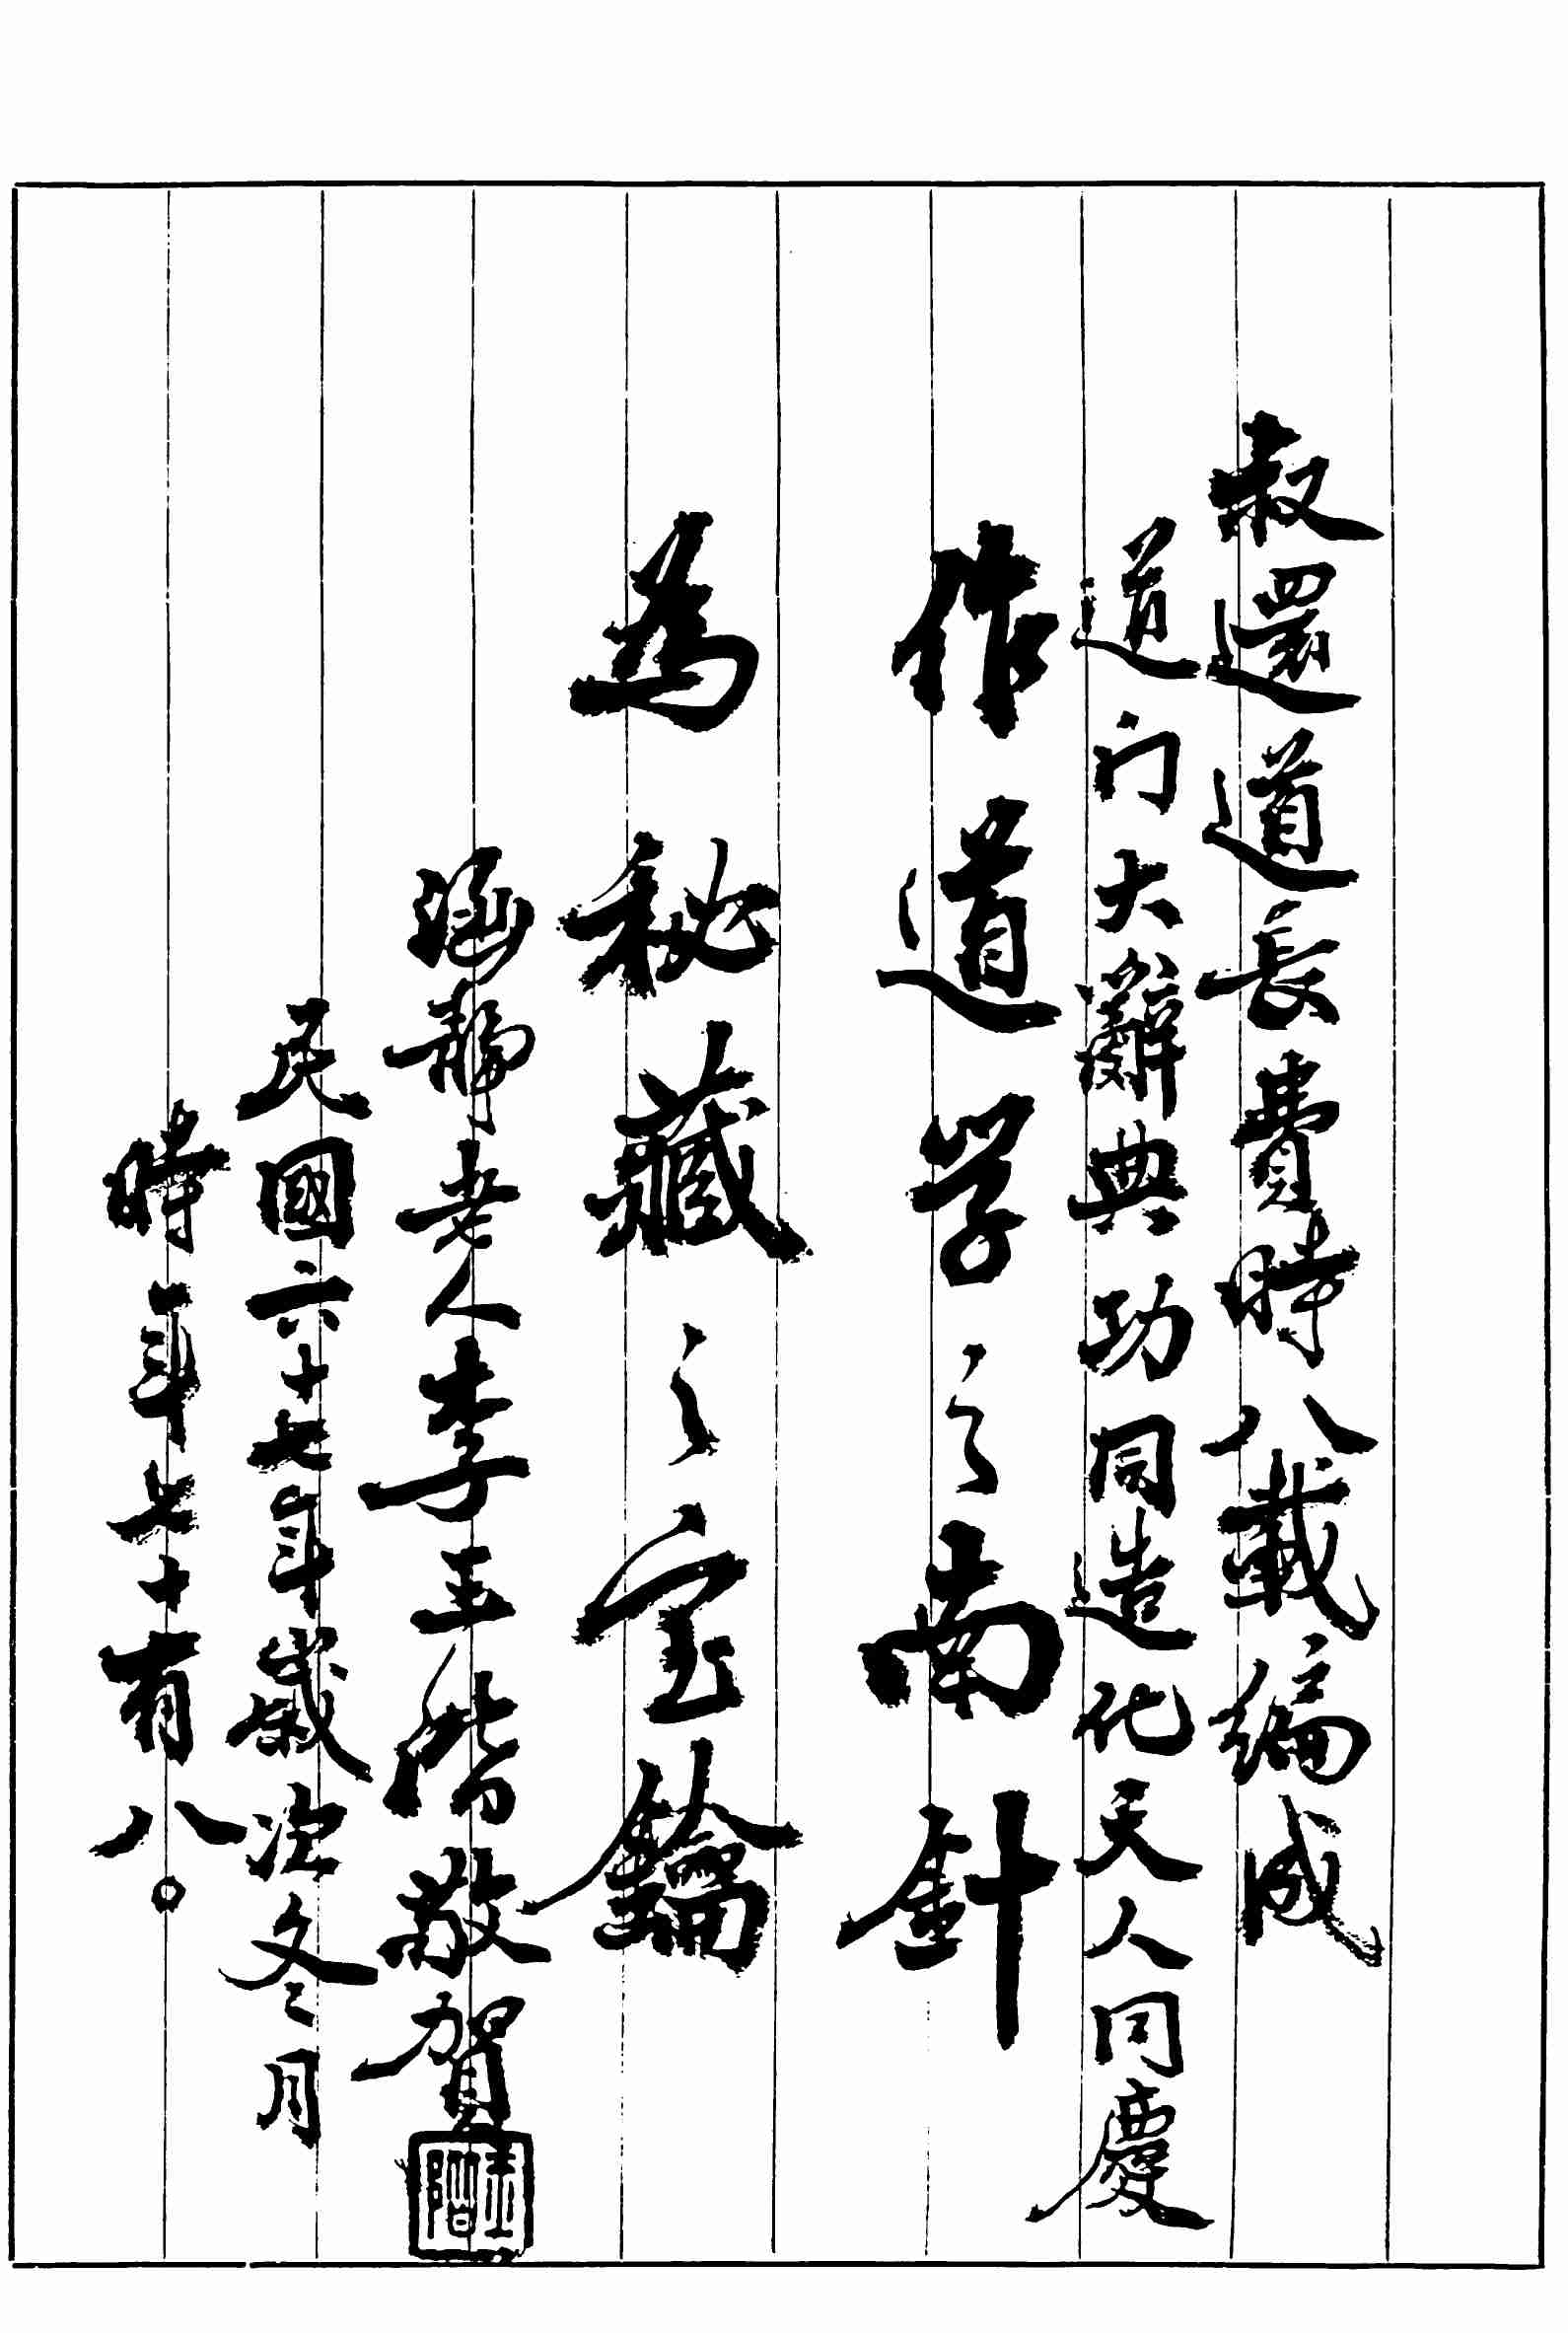 叔還道長費時八載編成
道门大辭典功同造化天人同慶
作道学之南針
為秘藏之宝鑰
涵靜老人李玉階敬賀
玉階
民國六十七年歲次冬月
時年七十有八。